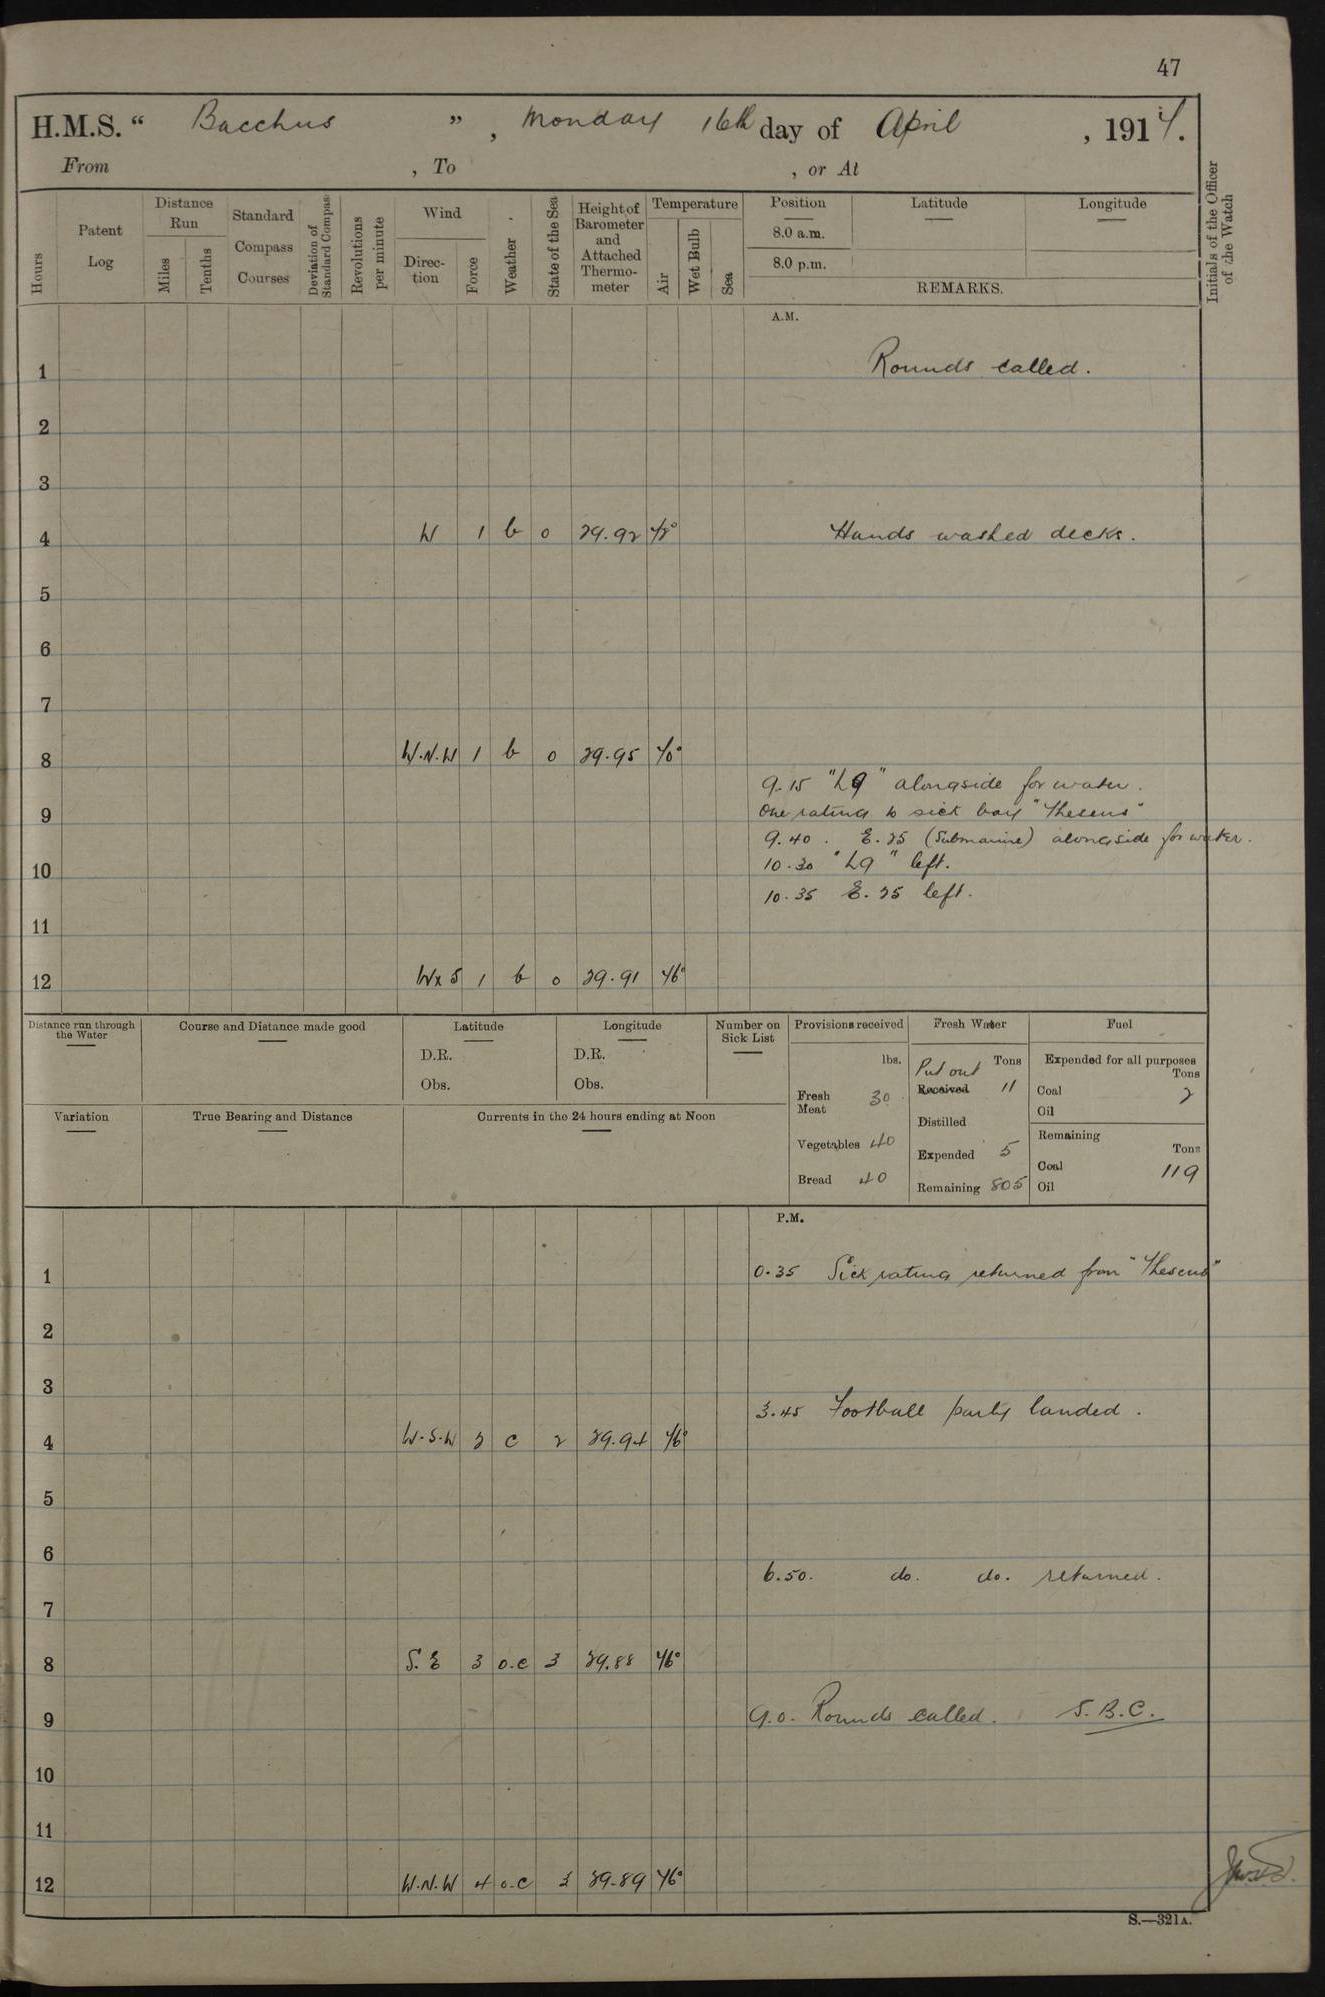 47
H.M.S. “ Bacchus ” , Monday 16th day of April , 1917.
From , To , or At
Hours
Patent Log
Distance Run
Miles
Tenths
Standard Compass Courses
Deviation of Standard Compass
Revolutions per minute
Wind
Direction
Force
Weather
State of the Sea
Height of Barometer and Attached Thermometer
Temperature
Air
Wet Bulb
Sea
Position Latitude Longitude
8.0 a.m.
8.0 p.m.
REMARKS.
Initials of the Officer of the Watch
A.M.
1 Rounds called.
2
3
4 W 1 b 0 29.92 Hands washed decks.
5
6
7
8 W.N.W 1 b 0 29.95 40°
9.15 "L9" alongside for water.
9 One rating to sick bay "Theseus"
9.40. E.25 (Submarine) alongside for water.
10 10.30 "L9" left.
10.35 E.25 left.
11
12 WxS 1 b 0 29.91 46°
Distance run through the Water
Course and Distance made good
Latitude
D.R.
Obs.
Longitude
D.R.
Obs.
Number on Sick List
Variation
True Bearing and Distance
Currents in the 24 hours ending at Noon
Provisions received
lbs.
Fresh Meat 30
Vegetables 40
Bread 40
Fresh Water
Tons
Put out
Received 11
Distilled
Expended 5
Remaining 805
Fuel
Expended for all purposes
Tons
Coal 2
Oil
Remaining
Tons
Coal 119
Oil
P.M.
1 0.35 Sick rating returned from "Theseus"
2
3
3.45 Football party landed.
4 W.S.W 2 c 2 29.94 46°
5
6
6.50. do. do. returned.
7
8 S.E 3 o.c 3 29.88 46°
9 9.0. Rounds called. S.B.C.
10
11
12 W.N.W 4 o.c 3 29.89 46°
S.—321A.